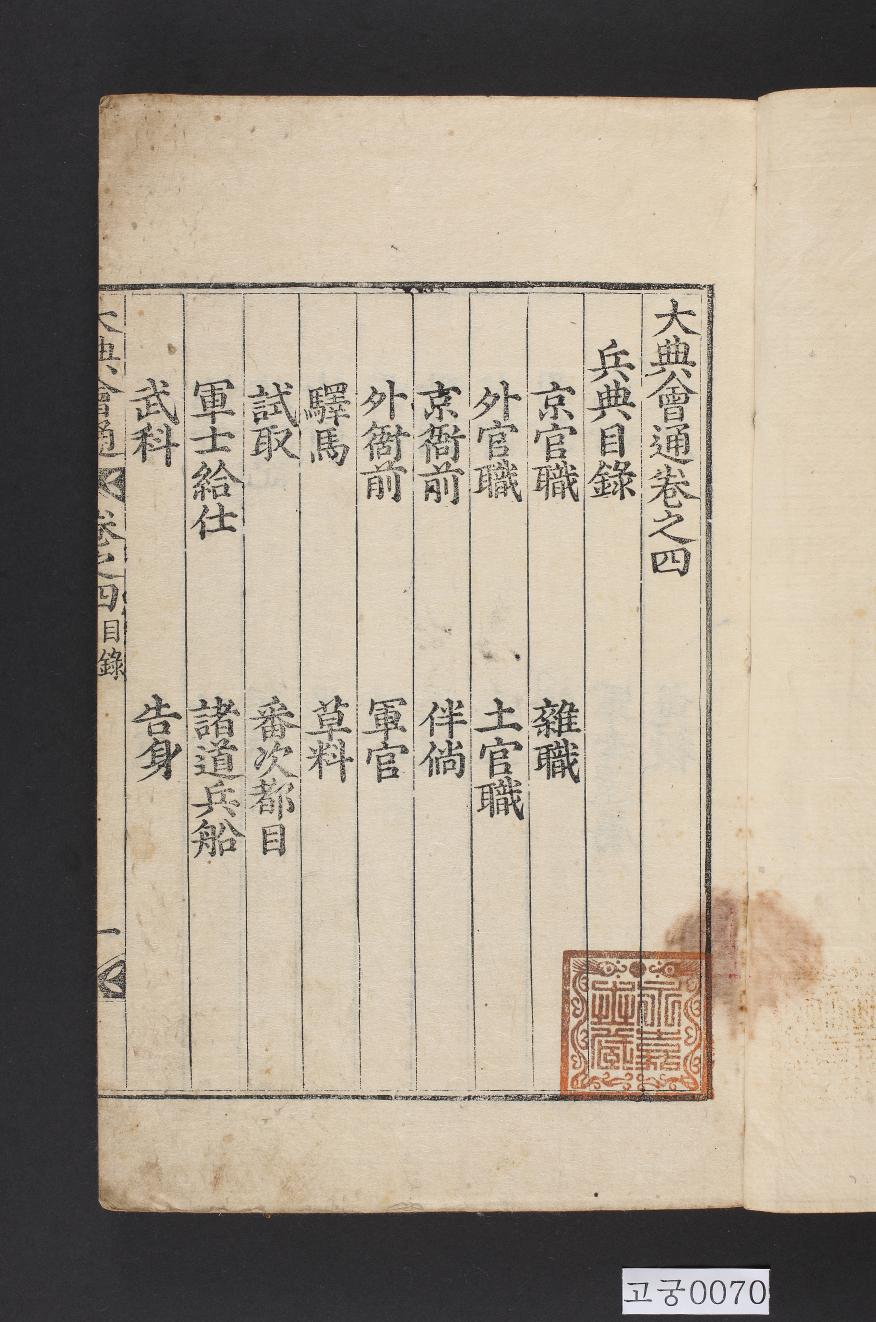 大典會通卷之四
兵典目錄
京官職 雜職
外官職 土官職
京衙前 伴倘
外衙前 軍官
驛馬 草料
試取 番次都目
軍士給仕 諸道兵船
武科 告身
大典會通 卷之四 目錄 一
고궁0070